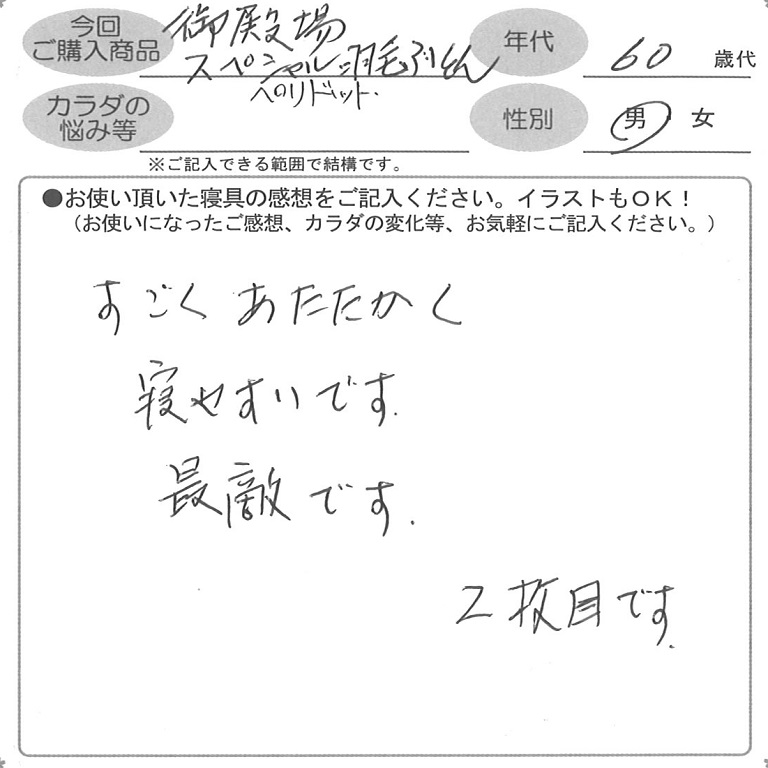 今回
ご購入商品
御殿場
スペシャル羽毛ふとん
ペリドット.
年代
60 歳代
カラダの
悩み等
性別
男 女
※ご記入できる範囲で結構です。
●お使い頂いた寝具の感想をご記入ください。イラストもOK!
(お使いになったご感想、カラダの変化等、お気軽にご記入ください。)
すごくあたたかく
寝やすいです.
最敵です.
2枚目です.